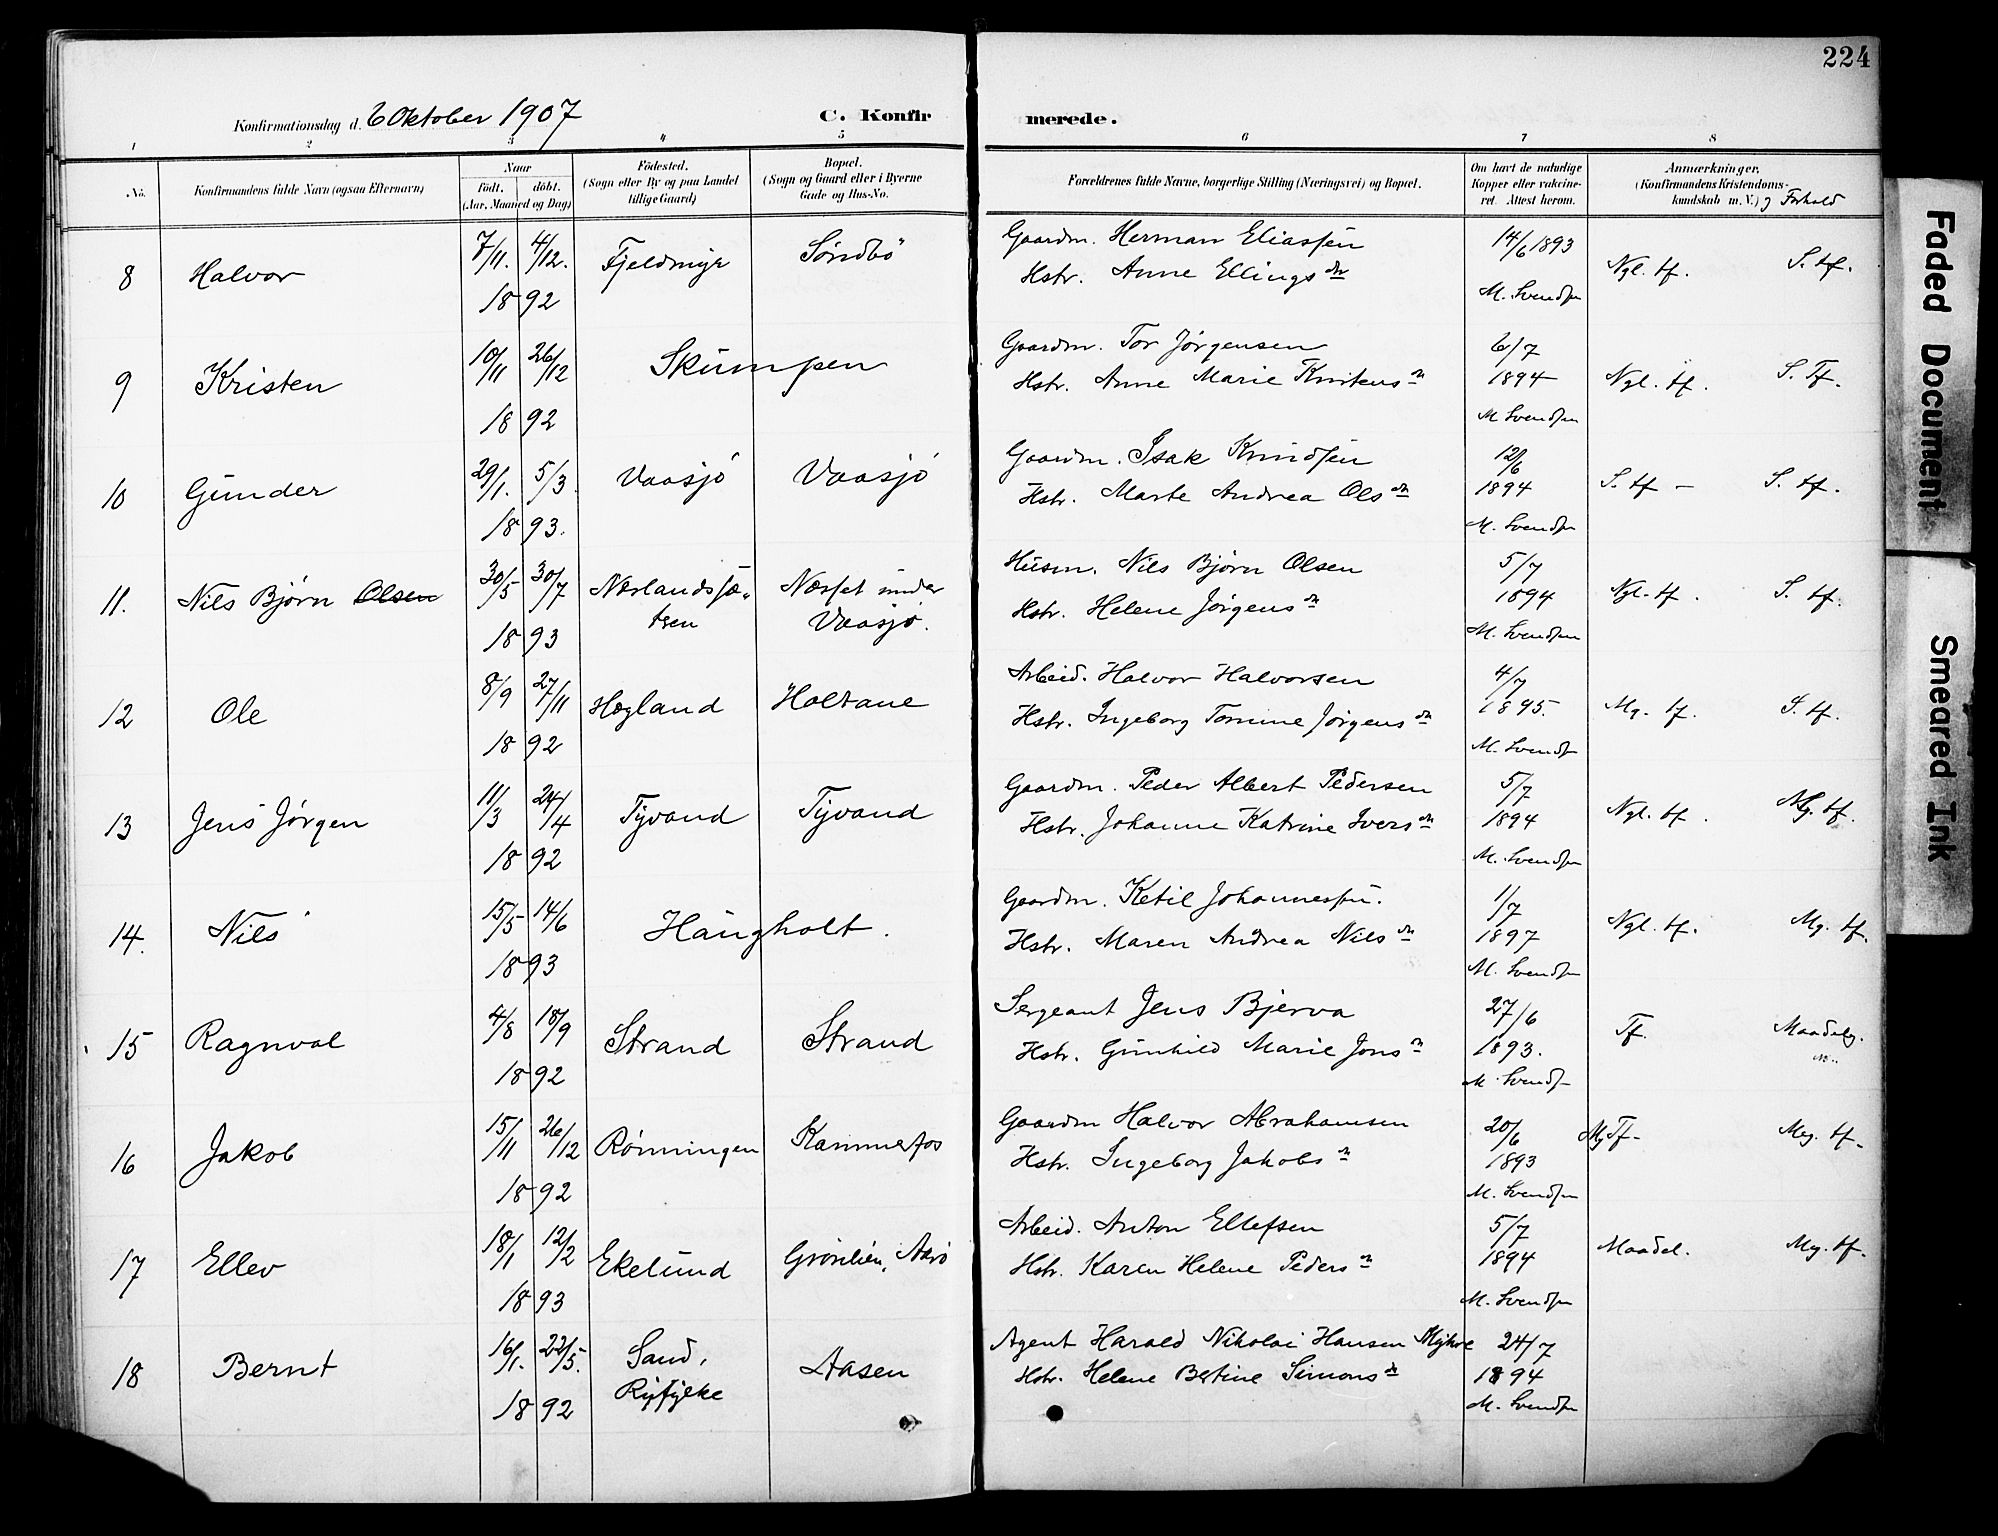 224
Konfirmationsdag d. 6 Oktober 1907 C. Konfirmerede.
1 2 3 4 5 6 7 8
No. Konfirmandens fulde Navn (ogsaa Efternavn) Naar født. døbt. (Aar, Maaned og Dag) Fødested. (Sogn eller By og paa Landet tillige Gaard) Bopæl. (Sogn og Gaard eller i Byerne Gade og Hus-No. Forældrenes fulde Navne, borgerlige Stilling (Næringsvei) og Bopæl. Om havt de naturlige Kopper eller vakcineret. Attest herom. Anmærkninger. (Konfirmandens Kristendomskundskab m. V.) og Forhold
8 Halvor 7/11. 4/12. 1892 Fjeldmyr Søndbö Gaardm. Herman Eliassen
Hstr. Anne Ellingsdr 14/6 1893 M. Svendsen Ngl. tf. S. tf.
9 Kristen 10/11 26/12 1892 Skumpen Gaardm. Tor Jørgensen
Hstr. Anne Marie Knutens 6/7 1894 M Svendsen Ngl. tf. S. Tf.
10 Gunder 29/1. 5/3. 1893. Vaasjö Vaasjö Gaardm. Isak Knudsen
Hstr. Marte Andrea Olsdr 12/6 1894 M. Svendsen S. tf – S. tf.
11. Nils Bjørn Olsen 30/5 30/7 1893 Nærlandssætren Næsset under Vaasjø. Husm. Nils Bjørn Olsen
Hstr. Helene Jørgensdr 5/7 1894 M. Svendsen Ngl. tf. S. tf.
12 Ole 8/9 27/11 1892 Høgland Holtane Arbeid. Halvor Halvorsen
Hstr. Ingeborg Tomine Jørgensdr 4/7 1895. M. Svends Mg. tf. S. tf.
13 Jens Jørgen 11/3 24/4 1892 Tyvand Tyvand Gaardm. Peder Albert Pedersen
Hstr. Johanne Katrine Iversdr 5/7 1894 M. Svendsen Ngl. tf. Mg. tf.
14. Nils 15/5 14/6 1893 Haugholt. Gaardm. Ketil Johannessen.
Hstr. Maren Andrea Nilsdr 1/7 1897 M. Svendsen Ngl. tf. Mg. tf.
15 Ragnval 4/8 18/9 1892 Strand Strand Sergeant Jens Bjerva
Hstr. Gunhild Marie Jons 27/6 1893. M. Svends Tf. Maadelg.
16 Jakob 15/11 26/12 1892 Rønningen Kammerfos Gaardm Halvor Abrahamsen
Hstr. Ingeborg Jakobs 20/6 1893 M. Svendsen Mg Tf- Meg. tf.
17 Ellev 18/1 12/2 1893 Ekelund Grønlien, Aarø Arbeid. Anton Ellefsen
Hstr. Karen Helene Peders 5/7 1894 M. Svendsen Maadel. Meg. tf.
18 Bernt 16/1. 22/5. 1892 Sand, Ryfylke Aasen Agent Harald Nikolai Hansen
Hstr. Helene Bertine Simonsdr 24/7 1894 M. Svendsen
Faded Document
Smeared Ink